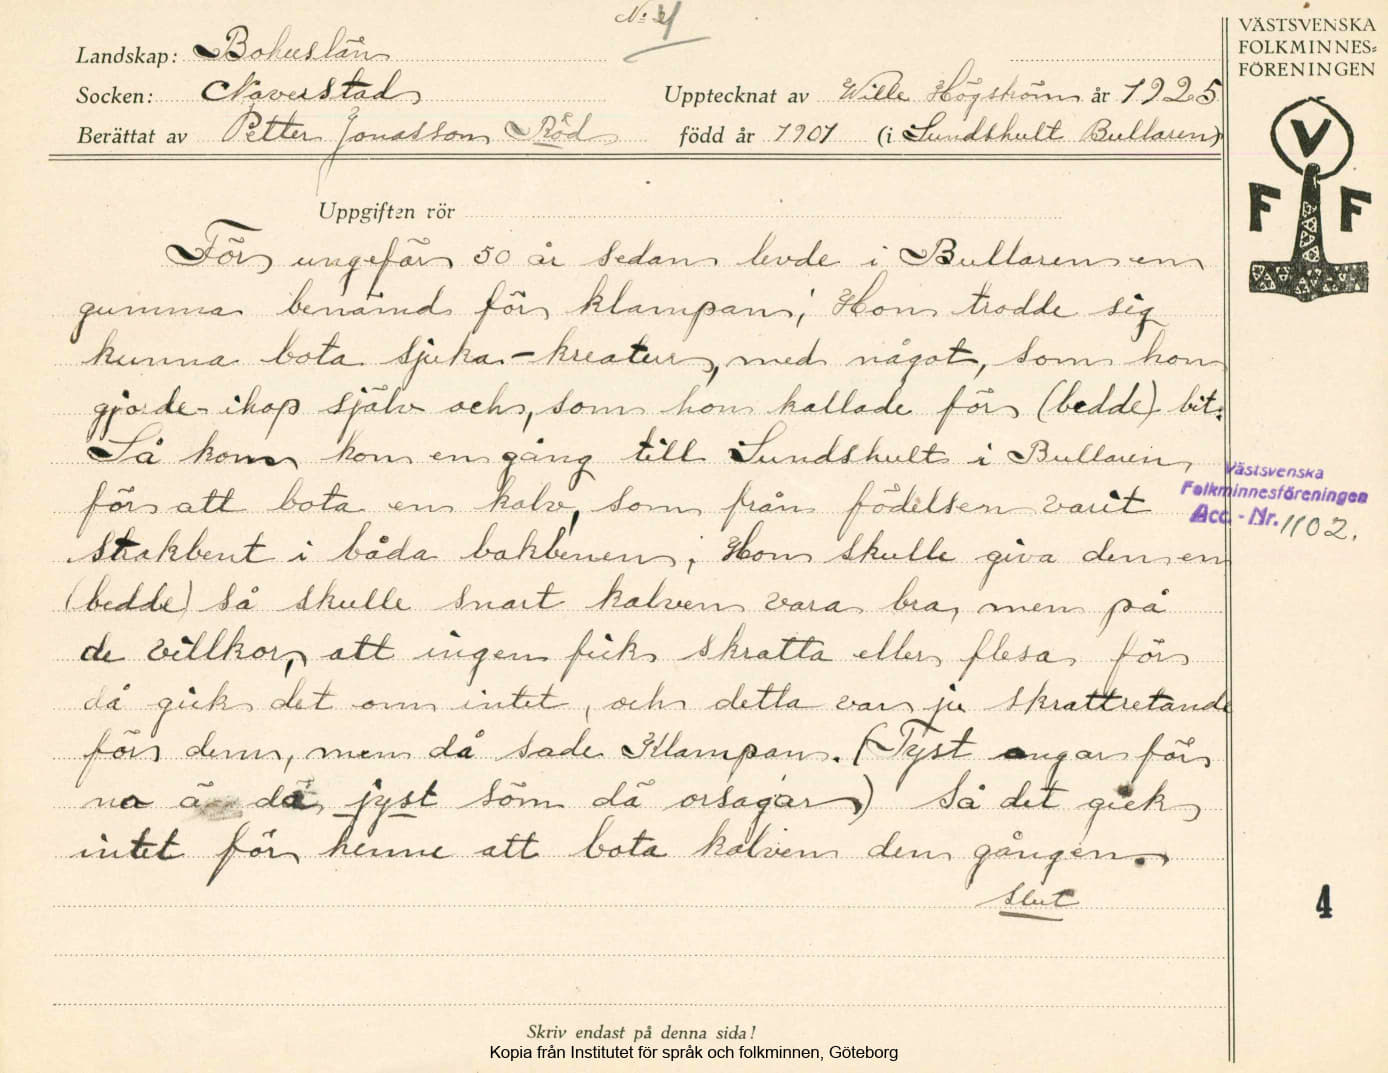 No 4
Landskap: Bohuslän
Socken: Naverstad
Upptecknat av Wille Högström år 1925
Berättat av Petter Jonasson Röd född år 1901 (i Sundshult Bullaren)
Uppgiften rör
För ungefär 50 år sedan levde i Bullaren en
gumma benämnd för klampan; Hon trodde sig
kunna bota sjuka-kreatur, med något, som hon
gjorde ihop själv och, som hon kallade för (bedde) bit.
Så kom hon en gång till Sundshult i Bullaren
för att bota en kalv, som från födelsen varit
strakbent i båda bakbenen; Hon skulle giva den en
(bedde) så skulle snart kalven vara bra, men på
de villkor, att ingen fick skratta eller flesa för
då gick det om intet, och detta var ju skrattretande
för dem, men då sade Klampan. (Tyst ongar för
na ä dä jyst söm dä orsagar) Så det gick
intet för henne att bota kalven den gången.
slut
Skriv endast på denna sida!
Kopia från Institutet för språk och folkminnen, Göteborg
VÄSTSVENSKA
FOLKMINNES=
FÖRENINGEN
V
F F
Västsvenska
Folkminnesföreningen
Acc.-Nr. 1102.
4